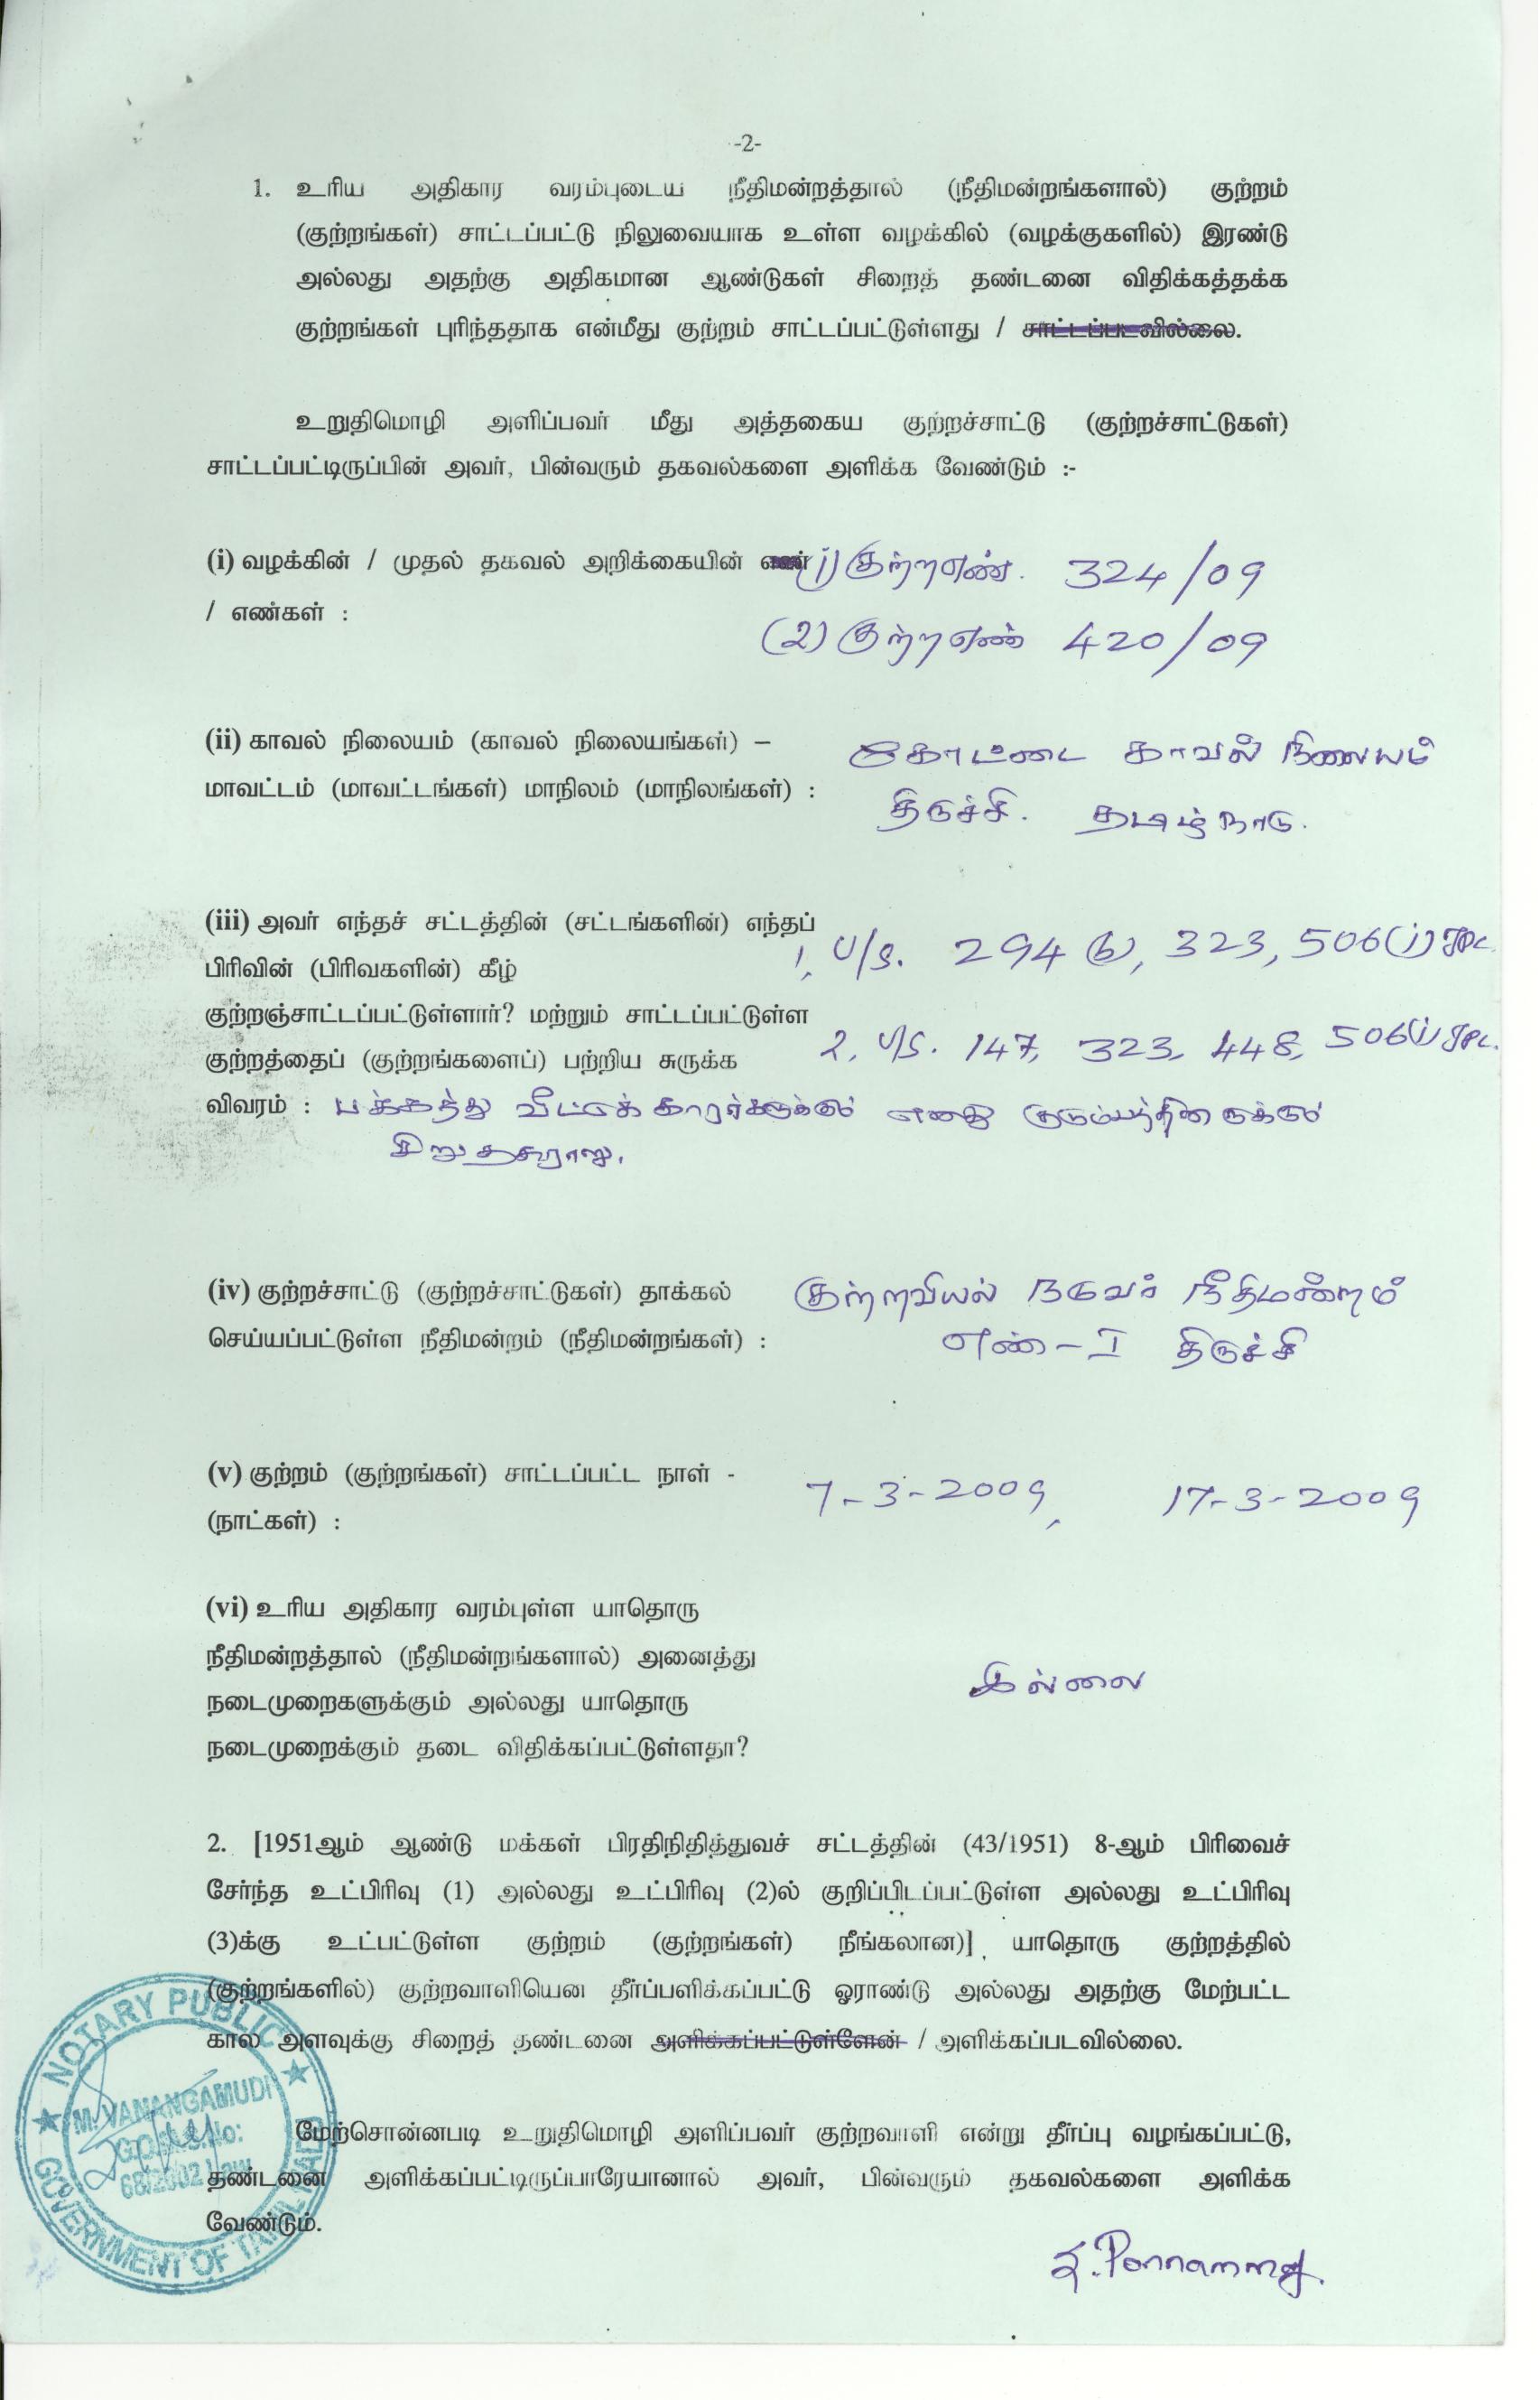 -2-
1. உரிய அதிகார வரம்புடைய நீதிமன்றத்தால் (நீதிமன்றங்களால்) குற்றம்
(குற்றங்கள்) சாட்டப்பட்டு நிலுவையாக உள்ள வழக்கில் (வழக்குகளில்) இரண்டு
அல்லது அதற்கு அதிகமான ஆண்டுகள் சிறைத் தண்டனை விதிக்கத்தக்க
குற்றங்கள் புரிந்ததாக என்மீது குற்றம் சாட்டப்பட்டுள்ளது / சாட்டப்படவில்லை.
உறுதிமொழி அளிப்பவர் மீது அத்தகைய குற்றச்சாட்டு (குற்றச்சாட்டுகள்)
சாட்டப்பட்டிருப்பின் அவர், பின்வரும் தகவல்களை அளிக்க வேண்டும் :-
(i) வழக்கின் / முதல் தகவல் அறிக்கையின் எண் (1) குற்றஎண். 324/09
/ எண்கள் :
(2) குற்றஎண் 420/09
(ii) காவல் நிலையம் (காவல் நிலையங்கள்) – கோட்டை காவல் நிலையம்
மாவட்டம் (மாவட்டங்கள்) மாநிலம் (மாநிலங்கள்) : திருச்சி. தமிழ்நாடு.
(iii) அவர் எந்தச் சட்டத்தின் (சட்டங்களின்) எந்தப்
பிரிவின் (பிரிவகளின்) கீழ் 1, U/s. 294 (b), 323, 506(i) IPC.
குற்றஞ்சாட்டப்பட்டுள்ளார்? மற்றும் சாட்டப்பட்டுள்ள
குற்றத்தைப் (குற்றங்களைப்) பற்றிய சுருக்க 2, U/S. 147, 323, 448, 506(i) IPC.
விவரம் : பக்கத்து வீட்டுக்காரர்களுக்கும் எனது குடும்பத்தினருக்கும்
சிறு தகராறு.
(iv) குற்றச்சாட்டு (குற்றச்சாட்டுகள்) தாக்கல் குற்றவியல் நடுவர் நீதிமன்றம்
செய்யப்பட்டுள்ள நீதிமன்றம் (நீதிமன்றங்கள்) : எண் - I திருச்சி
(v) குற்றம் (குற்றங்கள்) சாட்டப்பட்ட நாள் - 7-3-2009, 17-3-2009
(நாட்கள்) :
(vi) உரிய அதிகார வரம்புள்ள யாதொரு
நீதிமன்றத்தால் (நீதிமன்றங்களால்) அனைத்து
நடைமுறைகளுக்கும் அல்லது யாதொரு இல்லை
நடைமுறைக்கும் தடை விதிக்கப்பட்டுள்ளதா?
2. [1951ஆம் ஆண்டு மக்கள் பிரதிநிதித்துவச் சட்டத்தின் (43/1951) 8-ஆம் பிரிவைச்
சேர்ந்த உட்பிரிவு (1) அல்லது உட்பிரிவு (2)ல் குறிப்பிடப்பட்டுள்ள அல்லது உட்பிரிவு
(3)க்கு உட்பட்டுள்ள குற்றம் (குற்றங்கள்) நீங்கலான)] யாதொரு குற்றத்தில்
(குற்றங்களில்) குற்றவாளியென தீர்ப்பளிக்கப்பட்டு ஓராண்டு அல்லது அதற்கு மேற்பட்ட
கால அளவுக்கு சிறைத் தண்டனை அளிக்கப்பட்டுள்ளேன் / அளிக்கப்படவில்லை.
மேற்சொன்னபடி உறுதிமொழி அளிப்பவர் குற்றவாளி என்று தீர்ப்பு வழங்கப்பட்டு,
தண்டனை அளிக்கப்பட்டிருப்பாரேயானால் அவர், பின்வரும் தகவல்களை அளிக்க
வேண்டும்.
NOTARY PUBLIC
M. VANANGAMUDI
G.O.M.S.No:
68/2002 Law
GOVERNMENT OF TAMIL NADU
S. Ponnammal.